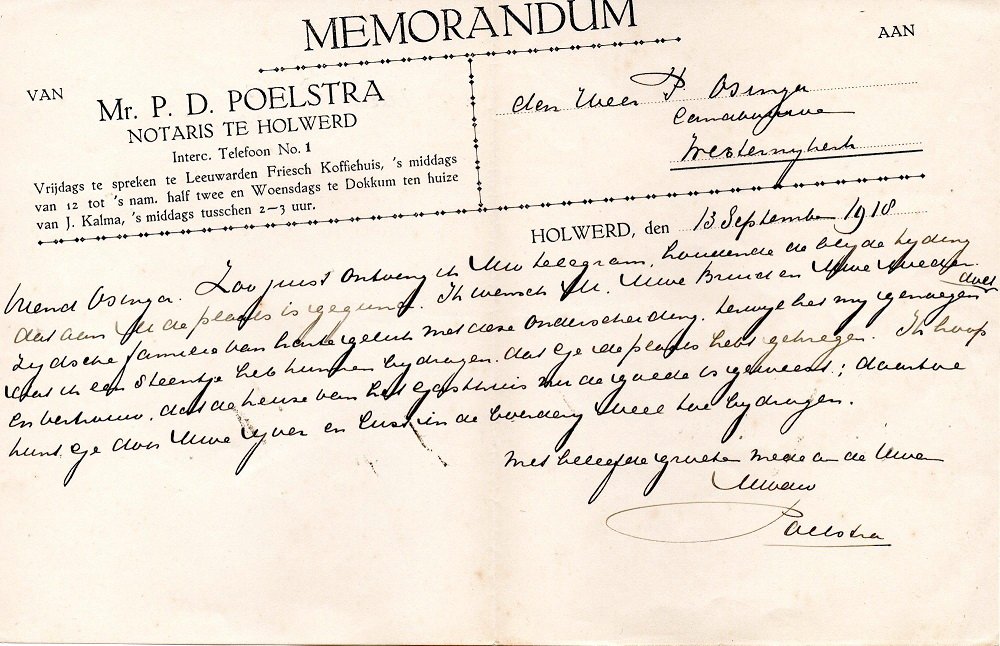 MEMORANDUM
VAN
AAN
Mr. P. D. POELSTRA
NOTARIS TE HOLWERD
Interc. Telefoon No. 1
Vrijdags te spreken te Leeuwarden Friesch Koffiehuis, 's middags
van 12 tot 's nam. half twee en Woensdags te Dokkum ten huize
van J. Kalma, 's middags tusschen 2—3 uur.
den Heer P Osinga
Westernijkerk
HOLWERD, den 13 September 1918
Vriend Osinga. Zoo juist ontving ik Uw telegram, houdende de blijde tijding
dat aan U de plaats is gegund. Ik wensch U, Uwe Bruid en Uwe wederzijdsche
familie van harte geluk met deze onderscheiding, terwijl het mij genoegen doet
dat ik een steentje heb kunnen bijdragen, dat ge de plaats hebt gekregen. Ik hoop
en vertrouw, dat de keuze van het Gasthuis nu de goede is geweest; daartoe
kunt ge door Uwe ijver en lust in de boerderij veel toe bijdragen.
Met beleefde groeten mede a de Uwen
Uwdw
Poelstra